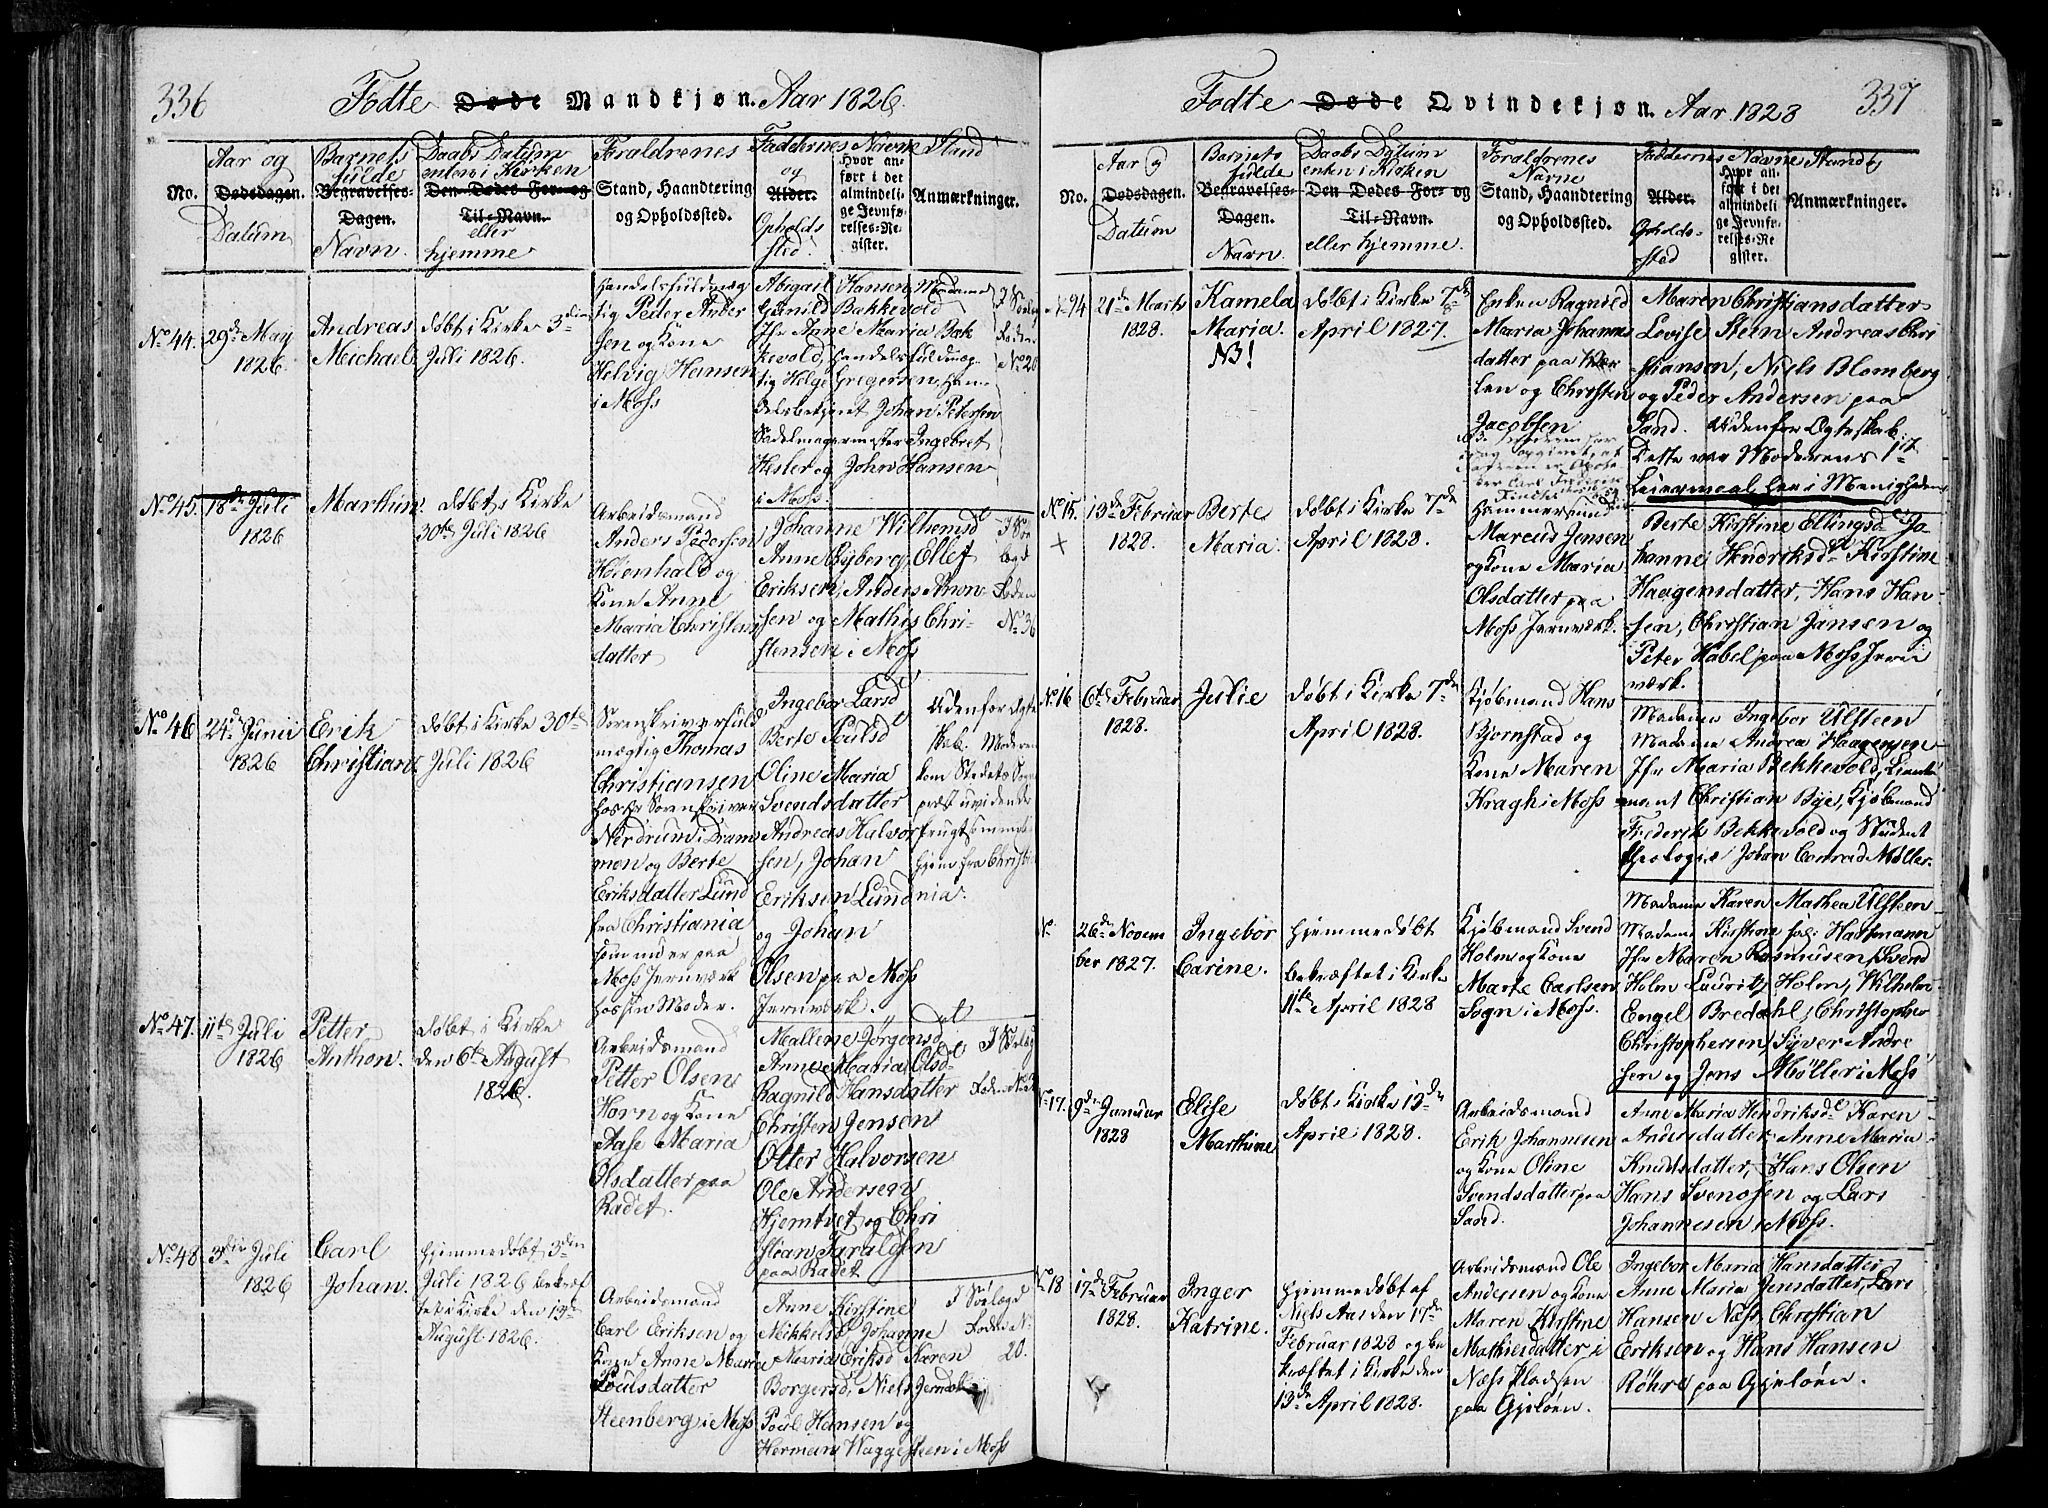 336
Fødte Døde Mandkjøn. Aar 1826.
No.
Aar og
Dødsdagen.
Datum
Barnets
fulde
Begravelses-
Dagen.
Navn.
Daabs Datum
enten i Kirken
Den Dødes For- og
Til-Navn.
eller
hjemme
Foraldrenes
Stand, Haandtering
og Opholdssted.
Faddernes Navne Stand
og
Alder.
Opholds
sted.
Hvor an-
ført i det
almindeli-
ge Jevnfø-
relses-Re-
gister.
Anmærkninger.
No 44.
29de May
1826.
Andreas
Michael
døbt i Kirke 3die
Juli 1826.
Handelsfuldmæg
tig Peder Ander
sen og Kone
Helvig Hansen
i Moss
Abigail Hansen, Madame
Gunild Bakkevold
Jfr Anne Maria Bak
kevold, Handelsfuldmæg
tig Helge Gregersen, Han-
delsbetjent Johan Petersen
Sadelmagermester Ingebret
Hesler og John Hansen
i Moss.
No 45.
18de Juli
1826
Marthin.
døbt i Kirke
30te Juli 1826
Arbeidsmand
Anders Pedersen
Høienhald og
Kone Anne
Maria Christens
datter
Johanne Wilhemsd
Anne Nyberg Ellef
Eriksen, Anders Aron-
sen og Mathis Chri-
stensen i Moss
No 36
No 46
24de Junii
1826
Erik
Christian.
døbt i Kirke 30te
Juli 1826
Sorenskriverfuld
mægtig Thomas
Christiansen
hos Hr Sorenskriver
Nerdrum i Dram
men og Berte
Eriksdatter Lund
fra Christiania
som nu er paa
Moss Jernværk
hos sin Moder.
Ingebor Larsd
Berte Poulsd
Oline Maria
Svendsdatter
Andreas Halvor
sen, Johan
Eriksen Lund
og Johan
Olsen paa Moss
Jernværk.
Udenfor Ægte
skab. Moderen
kom Stedets Sogne
præst uvidende
frugtsommelig
hjem fra Christia
nia.
No 47.
11te Juli
1826
Petter
Anthon.
døbt i Kirke
den 6te August
1826.
Arbeidsmand
Petter Olsen
Horn og Kone
Aase Maria
Olsdatter paa
Radet.
Mallene Jørgensd
Anne Maria Olsd
Ragnild Hansdatter
Christen Jensen
Otter Halvorsen
Ole Andersen
Hjemtvet og Chri
stian Taraldsen
paa Radet
No 48.
3die Juli
1826
Carl
Johan.
hjemmedøbt 3den
Juli 1826 bekræf
tet i Kirke den 13de
August 1826.
Arbeidsmand
Carl Eriksen og
Kone Anne Maria
Poulsdatter
Steenberg i Moss
Anne Kirstine
Mikkelsd Johanne
Maria Eriksd Karen
Borgersd, Niels
Poul Hansen og
Herman Waggesteen i Moss
20.
337
Fødte Døde Qvindekjøn. Aar 1828
No.
Aar og
Dødsdagen.
Datum
Barnets
fulde
Begravelses-
Dagen.
Navn.
Daabs Datum
enten i Kirken
Den Dødes For- og
Til-Navn.
eller hjemme.
Foraldrenes
Navne
Stand, Haandtering
og Opholdssted.
Faddernes Navne Stand og
Alder.
Opholds-
sted
Hvor an-
ført i det
almindeli-
ge Jevnfø-
relses-Re-
gister.
Anmærkninger.
21de Marts
1828.
Kamela
Maria.
NB!
døbt i Kirke 7de
April 1827.
8
Enken Ragnild
Maria Johannes
datter paa Vær
len og Christen
Jacobsen
Maren Christiansdatter
Lovise Stein Andreas Chri
stiansen, Niels Blomberg
og Peder Andersen paa
Sand. Udenfor Ægteskab.
Dette var Moderens 1ste
Leiermaal her i Menigheden
No 15.
13de Februar
1828.
Berte
Maria.
døbt i Kirke 7de
April 1828.
Hammersmed
Marcus Jensen
og Kone Maria
Olsdatter paa
Moss Jernværk.
Berte Kirstine Ellingsd Jo-
hanne Hendriksd Kirstine
Haagensdatter, Hans Han-
sen, Christian Jansen og
Peter Habel paa Moss Jern
værk.
No 16
6te Februar
1828.
Julie
døbt i Kirke 7de
April 1828.
Kjøbmand Hans
Bjornstad og
Kone Maren
Kragh i Moss
Madame Ingebor Ulsteen
Madame Andrea Haagensen
Jfr Maria Bekkevold, Lieute
nant Christian Bye, Kjøbmand
Frederik Bekkevold og Student
theologiæ Johan Conrad Møller.
No
26de Novem
ber 1827.
Ingebor
Carine.
Hjemmedøbt
bekræftet i Kirke
11te April 1828
Kjøbmand Svend
Holm og Kone
Marte Carlsen
Sogn i Moss.
Madame Karen Mathea Ulsteen
Madame Kirstine sal. Hartmann
Jfr Maren Rasmusen, Svend
Holm Lauritz Holm, Wilhelm
Engel Bredahl, Christopher
Christophersen, Syver Andre
sen og Jens Møller i Moss
No 17.
9de Januar
1828
Elise
Marthine
døbt i Kirke 13de
April 1828.
Arbeidsmand
Erik Johannesen
og Kone Oline
Svendsdatter paa
Sand.
Anne Maria Hendriksd Karen
Andersdatter Anne Maria
Knudsdatter, Hans Olsen
Hans Svendsen og Lars
Johannesen i Moss.
No 18
17de Februar
1828.
Inger
Katrine.
Hjemmedøbt af
Niels Aas den 17de
Februar 1828 og be
kræftet i Kirke den
13de April 1828.
Arbeidsmand Ole
Andersen og Kone
Maren Kirstine
Mathiesdatter i
Næss Pladsen
paa Gjeløen.
Ingebor Maria Hansdatter
Anne Maria Jensdatter, Lars
Hansen Næss Christian
Eriksen og Hans Hansen
Røhre paa Gjeløen.